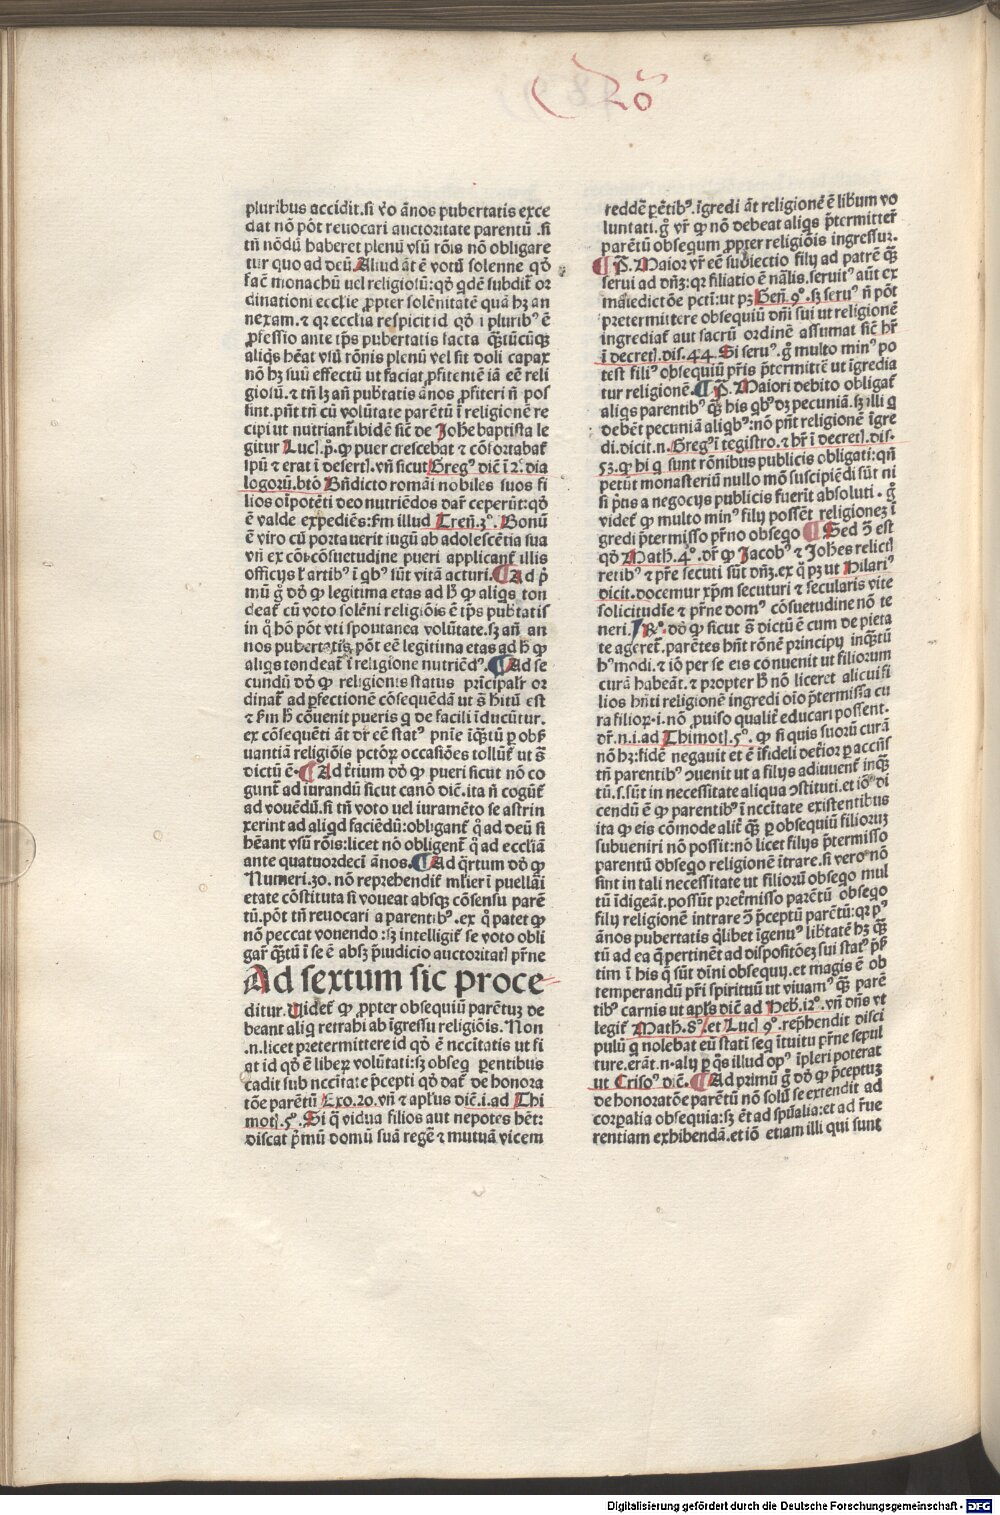 Rō
pluribus accidit.si v̄o ānos pubertatis exce
dat nō pōt reuocari auctoritate parentū .si
tn̄ nōdū haberet plenū vsū rōis nō obligare
tur quo ad deū.Aliud āt ē votū solenne qd̄
facē monachū uel religiosū:qd̄ qdē subdit̄ or
dinationi ecclie ꝓpter solēnitatē quā hꝫ an
nexam.⁊ qꝛ ecclia respicit id qd̄ ī pluribꝰ ē
ꝓfessio ante tp̄s pubertatis facta qꝫtūcūqꝫ
aliqs hēat vsū rōnis plenū vel sit doli capax
nō hꝫ suū effectū ut faciat ꝓfitentē iā eē reli
giosū.⁊ tn̄ lꝫ an̄ pub̄tatis ānos ꝓfiteri n̄ pos
sint.pn̄t tn̄ cū volūtate parētū ī religionē re
cipi ut nutriant̄ ibidē sic̄ de Johē baptista le
gitur Luc̄.p̄.ꝙ puer crescebat ⁊ cōfortabat̄
sp̄u ⁊ erat ī desert̄.vn̄ sicut Gregꝰ dic̄ ī 2.dia
logorū.btō Bn̄dicto romāi nobiles suos fi
lios oīpotēti deo nutriēdos dar̄ ceperūt:qd̄
ē valde expediēs:ẜm illud Tren̄.3º. Bonū
ē viro cū portauerit iugū ab adolescētia sua
vn̄ ex cōi cōsuetudine pueri applicant̄ illis
officijs l̄ artibꝰ ī qbꝰ sūt vitā acturi.¶Ad p̄
mū g̊ dd̄ ꝙ legitima etas ad h̄ ꝙ aliqs ton
deat̄ cū voto solēni religiōis ē tp̄s pub̄tatis
in q̊ hō pōt vti spontanea volūtate.sꝫ an̄ an
nos pubertatis pōt eē legitima etas ad h̄ ꝙ
aliqs tondeat̄ ī religione nutriēdꝰ.¶Ad se
cundū dd̄ ꝙ religionis status prīcipalr̄ or
dinat̄ ad ꝑfectionē cōsequēdā ut s̄ hitū est
⁊ ẜm h̄ cōuenit pueris q de facili īducūtur.
ex cōsequēti āt dr̄ eē statꝰ pn̄ie īqꝫtū ꝑ obs̄
uantiā religiōis pctōꝝ occasiōes tollūt̄ ut s̄
dictū ē.¶Ad t̄tium dd̄ ꝙ pueri sicut nō co
gunt̄ ad iurandū sicut canō dic̄.ita n̄ cogūt̄
ad vouēdū.si tn̄ voto vel iuramēto se astrin
xerint ad aliqd faciēdū:obligant̄ q̊ ad deū si
hēant vsū rōis:licet nō obligent̄ q̊ ad eccliā
ante quatuordeci ānos.¶Ad q̄rtum dd̄ ꝙ
Numeri.30. nō reprehendit̄ mlier ī puellāi
etate cōstituta si voueat absqꝫ cōsensu parē
tū.pōt tn̄ reuocari a parentibꝰ.ex q̊ patet ꝙ
nō peccat vouendo :sꝫ intelligit̄ se voto obli
gar̄ qꝫtū ī se ē absꝫ p̄iudicio auctoritat̄ pr̄ne
Ad sextum sic proce
ditur.Videt̄ ꝙ ꝓpter obsequiū parētuꝫ de
beant aliq retrahi ab īgressu religiōis. Non
.n.licet pretermittere id qd̄ ē nccitatis ut fi
at id qd̄ ē liberꝫ volūtati:sꝫ obseq ꝑentibus
cadit sub nccitate p̄cepti qd̄ dat̄ de honora
tōe parētū Exo.20.vn̄ ⁊ apl̄us dic̄.i.ad Thi
mot̄.5º.Si q̄ vidua filios aut nepotes hēt:
discat p̄mū domū suā regē ⁊ mutuā vicem
reddē ꝑētibꝰ.īgredi āt religionē ē liberum vo
luntati.g̊ vr̄ ꝙ nō debeat aliqs p̄termitter̄
parētū obsequm ꝓpter religiōis ingressur.
¶P̄.Maior vr̄ eē subiectio filij ad patrē qꝫ
serui ad dn̄ꝫ:qꝛ filiatio ē nālis.seruitꝰ aūt ex
maledictōe pctī:ut pꝫ Gen̄.9º.sꝫ seruꝰ n̄ pōt
pretermittere obsequiū dn̄i sui ut religionē
ingrediat̄ aut sacrū ordinē assumat sic̄ hr̄
ī decret̄.dis.44.Si seruꝰ.g̊ multo minꝰ po
test filiꝰ obsequiū pr̄is p̄termittē ut īgredia
tur religionē.¶P̄.Maiori debito obligat̄
aliqs parentibꝰ qꝫ his qbꝰ dꝫ pecuniā.sꝫ illi q
debēt pecuniā aliqbꝰ:nō pn̄t religionē īgre
di.dicit.n.Gregꝰ ī regist̄ro.⁊ hr̄ ī decret̄.dis.
53.ꝙ hi q sunt rōnibus publicis obligati:qn̄
petūt monasteriū nullo mō suscipiēdi sūt ni
si p̄us a negocijs publicis fuerīt absoluti.g̊
videt̄ ꝙ multo minꝰ filij possēt religionez ī
gredi p̄termisso pr̄no obseqo ¶Sed ↄ̄ est
qd̄ Math.4º.dr̄ ꝙ Jacobꝰ ⁊ Johēs relict̄
retibꝰ ⁊ pr̄e secuti sūt dn̄ꝫ.ex q̊ pꝫ ut Hilariꝰ
dicit.docemur xp̄m secuturi ⁊ secularis vite
solicitudīe ⁊ pr̄ne domꝰ cōsuetudine nō te
neri.℞º.dd̄ ꝙ sicut s̄ dictū ē cum de pieta
te ageret̄.parētes hn̄t rōnē principij inqꝫtū
hꝰmodi.⁊ iō per se eis conuenit ut filiorum
curā habeāt.⁊ propter h̄ nō liceret alicui fi
lios hn̄ti religionē ingredi oīo p̄termissa cu
ra filioꝝ.i.nō ꝓuiso qualit̄ educari possent.
dr̄.n.i.ad Thimot̄.5º. ꝙ si quis suorū curā
nō hꝫ:fidē negauit et ē īfideli det̄ior ꝑ accn̄s
tn̄ parentibꝰ ↄuenit ut a filijs adiuuent̄ inqꝫ
tū.s.sūt in necessitate aliqua ↄstituti.et iō dī
cendū ē ꝙ parentibꝰ ī nccitate existentibus
ita ꝙ eis cōmode alit̄ qꝫ ꝑ obsequiū filioruꝫ
subueniri nō possit:nō licet filijs p̄termisso
parentū obseqo religionē ītrare.si vero nō
sint in tali necessitate ut filiorū obseqo mul
tū īdigeāt.possūt pret̄misso parētū obseqo
filij religionē intrare ↄ̄ p̄ceptū parētū:qꝛ pꝰ
ānos pubertatis q̄libet īgenuꝰ lib̄tatē hꝫ qꝫ
tū ad ea q̄ pertinēt ad dispositōeꝫ sui statꝰ p̄s̄
tim ī his q̄ sūt dīni obsequij.et magis ē ob
temperandū pr̄i spirituū ut viuamꝰ qꝫ parē
tibꝰ carnis ut apl̄s dic̄ ad Heb̄.12º.vn̄ dn̄s vt
legit̄ Math.8º.et Luc̄ 9º.rep̄hendit disci
pulū q nolebat eū statī seq ītuitu pr̄ne sepul
ture.erāt.n.alij ꝑ qs illud opꝰ īpleri poterat
ut Crisoꝰ dic̄.¶Ad primū g̊ dd̄ ꝙ p̄ceptuꝫ
de honoratōe parētū nō solū se extendit ad
corꝑalia obsequia:sꝫ ēt ad sp̄ualia:et ad r̄ue
rentiam exhibendā.et iō etiam illi qui sunt
Digitalisierung gefördert durch die Deutsche Forschungsgemeinschaft - DFG